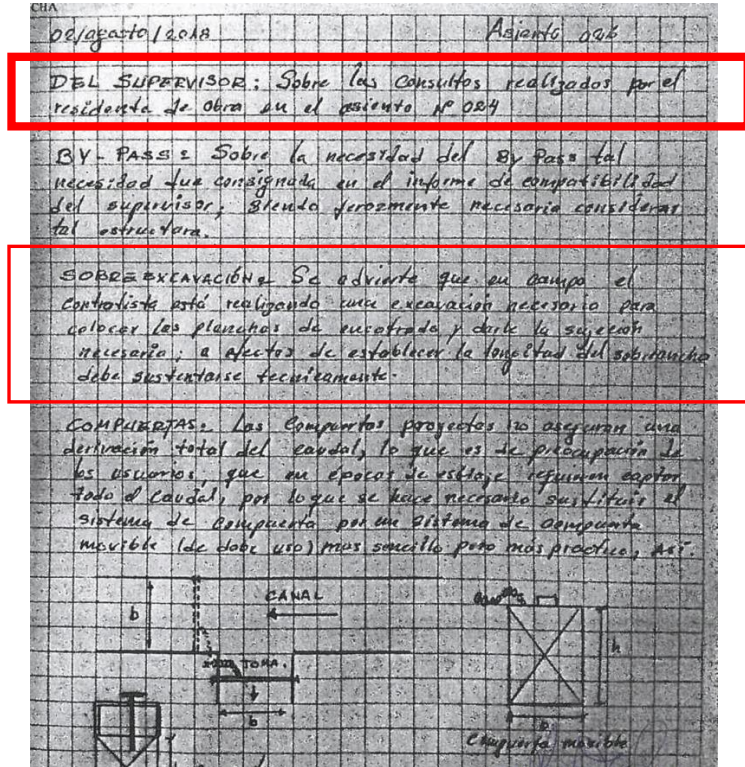 CHA
02/agosto/2018 Asiento 026
DEL SUPERVISOR: Sobre las consultas realizadas por el
residente de obra en el asiento Nº 024
BY-PASS: Sobre la necesidad del By Pass tal
necesidad fue consignada en el informe de compatibilidad
del supervisor, siendo ferozmente necesario considerar
tal estructura.
SOBREEXCAVACIÓN: Se advierte que en campo el
contratista está realizando una excavación necesario para
colocar las planchas de encofrado y darle la sujeción
necesaria; a efectos de establecer la longitud del sobreancho
debe sustentarse tecnicamente.
COMPUERTAS: Las Compuertas proyectos no aseguran una
derivación total del caudal, lo que es de preocupación de
los usuarios, que en épocas de estiaje requieren captar
todo el caudal, por lo que se hace necesario sustituir el
sistema de compuerta por un sistema de compuerta
movible (de dobe uso) mas sencillo pero más practico, Así.
CANAL
b
TOMA.
b
h
b
Compuerta movible